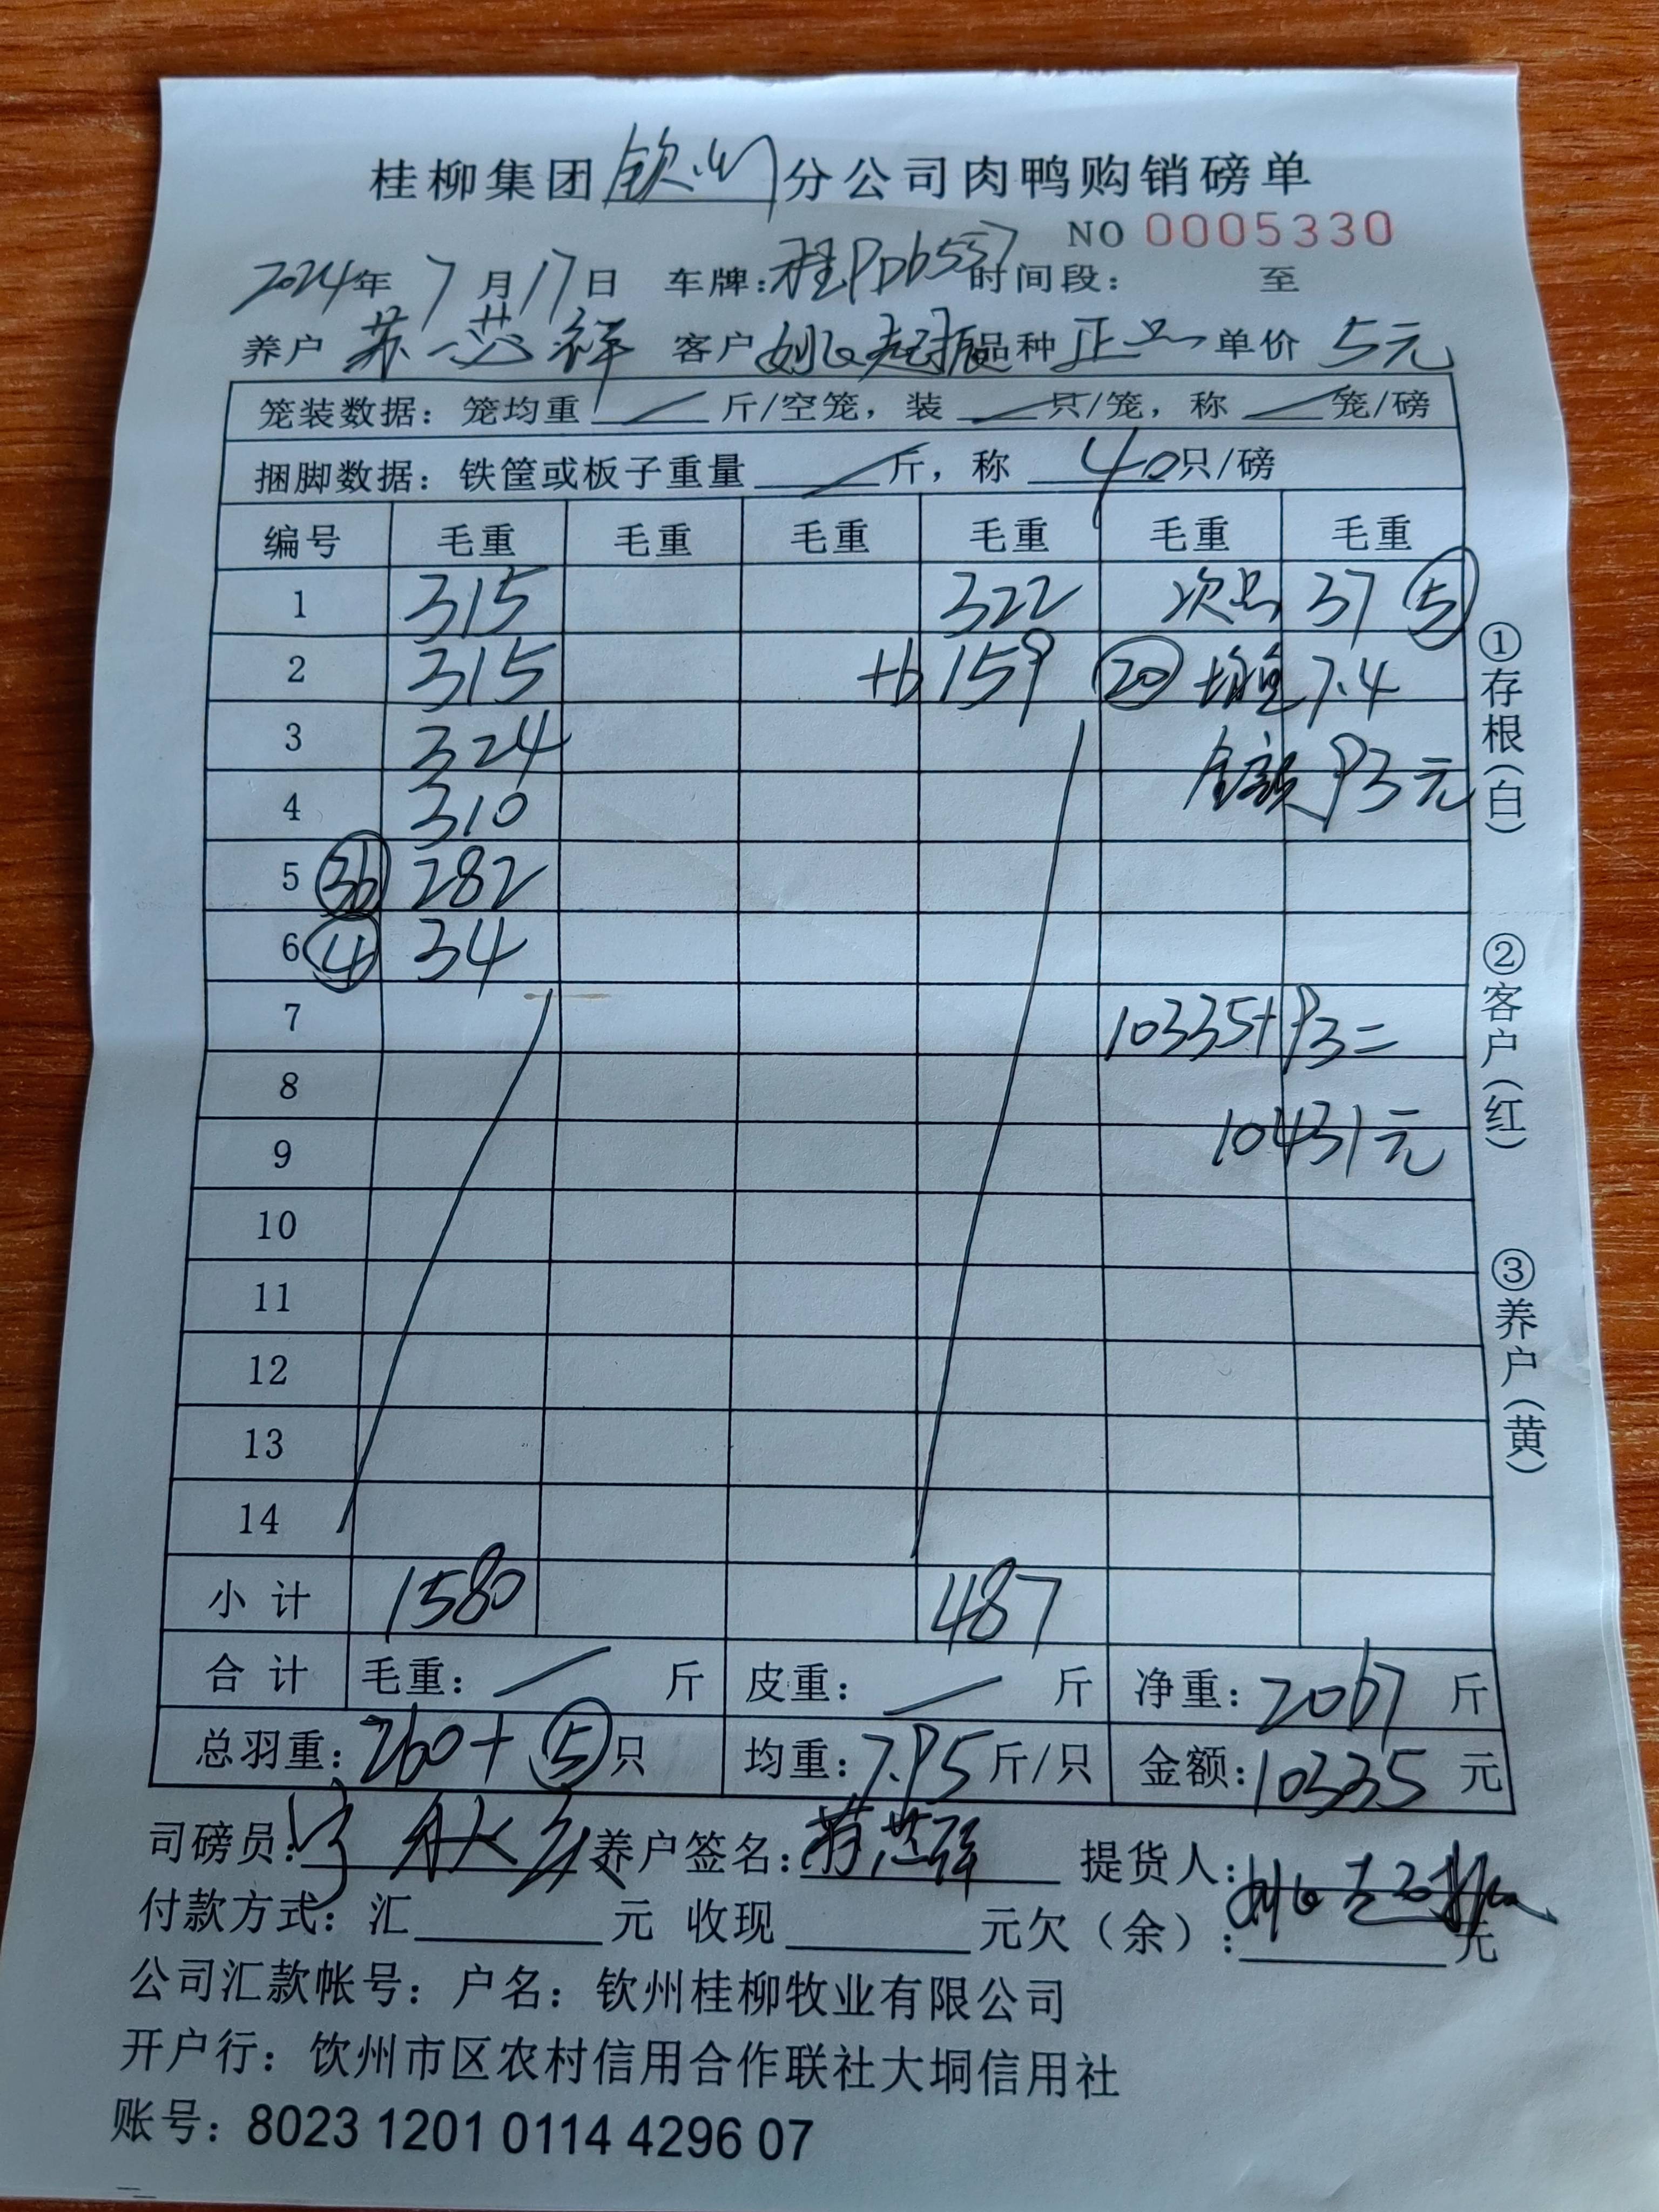 桂柳集团钦州分公司肉鸭购销磅单
NO 0005330
2024年 7月17日 车牌:桂PDb557 时间段: 至
养户 苏芯祥 客户 姚起振 品种 正品 单价 5元
笼装数据: 笼均重 斤/空笼, 装 只/笼, 称 笼/磅
捆脚数据: 铁筐或板子重量 斤, 称 40只/磅
编号 毛重 毛重 毛重 毛重 毛重 毛重
1 315 322 次品 37 ⑤
2 315 +6 159 ⑳ 均重 7.4
3 324
金额 93元
4 310
5 ㊱ 282
6 ④ 34
7 10335+93=
8
9 10431元
10
11
12
13
14
小计 1580 487
合计 毛重: 斤 皮重: 斤 净重: 2067 斤
总羽重: 260+⑤只 均重: 7.95斤/只 金额: 10335 元
司磅员: 养户签名: 苏芯祥 提货人: 姚起振
付款方式: 汇 元 收现 元欠(余): 元
公司汇款帐号: 户名: 钦州桂柳牧业有限公司
开户行: 钦州市区农村信用合作联社大垌信用社
账号: 8023 1201 0114 4296 07
①存根(白)
②客户(红)
③养户(黄)